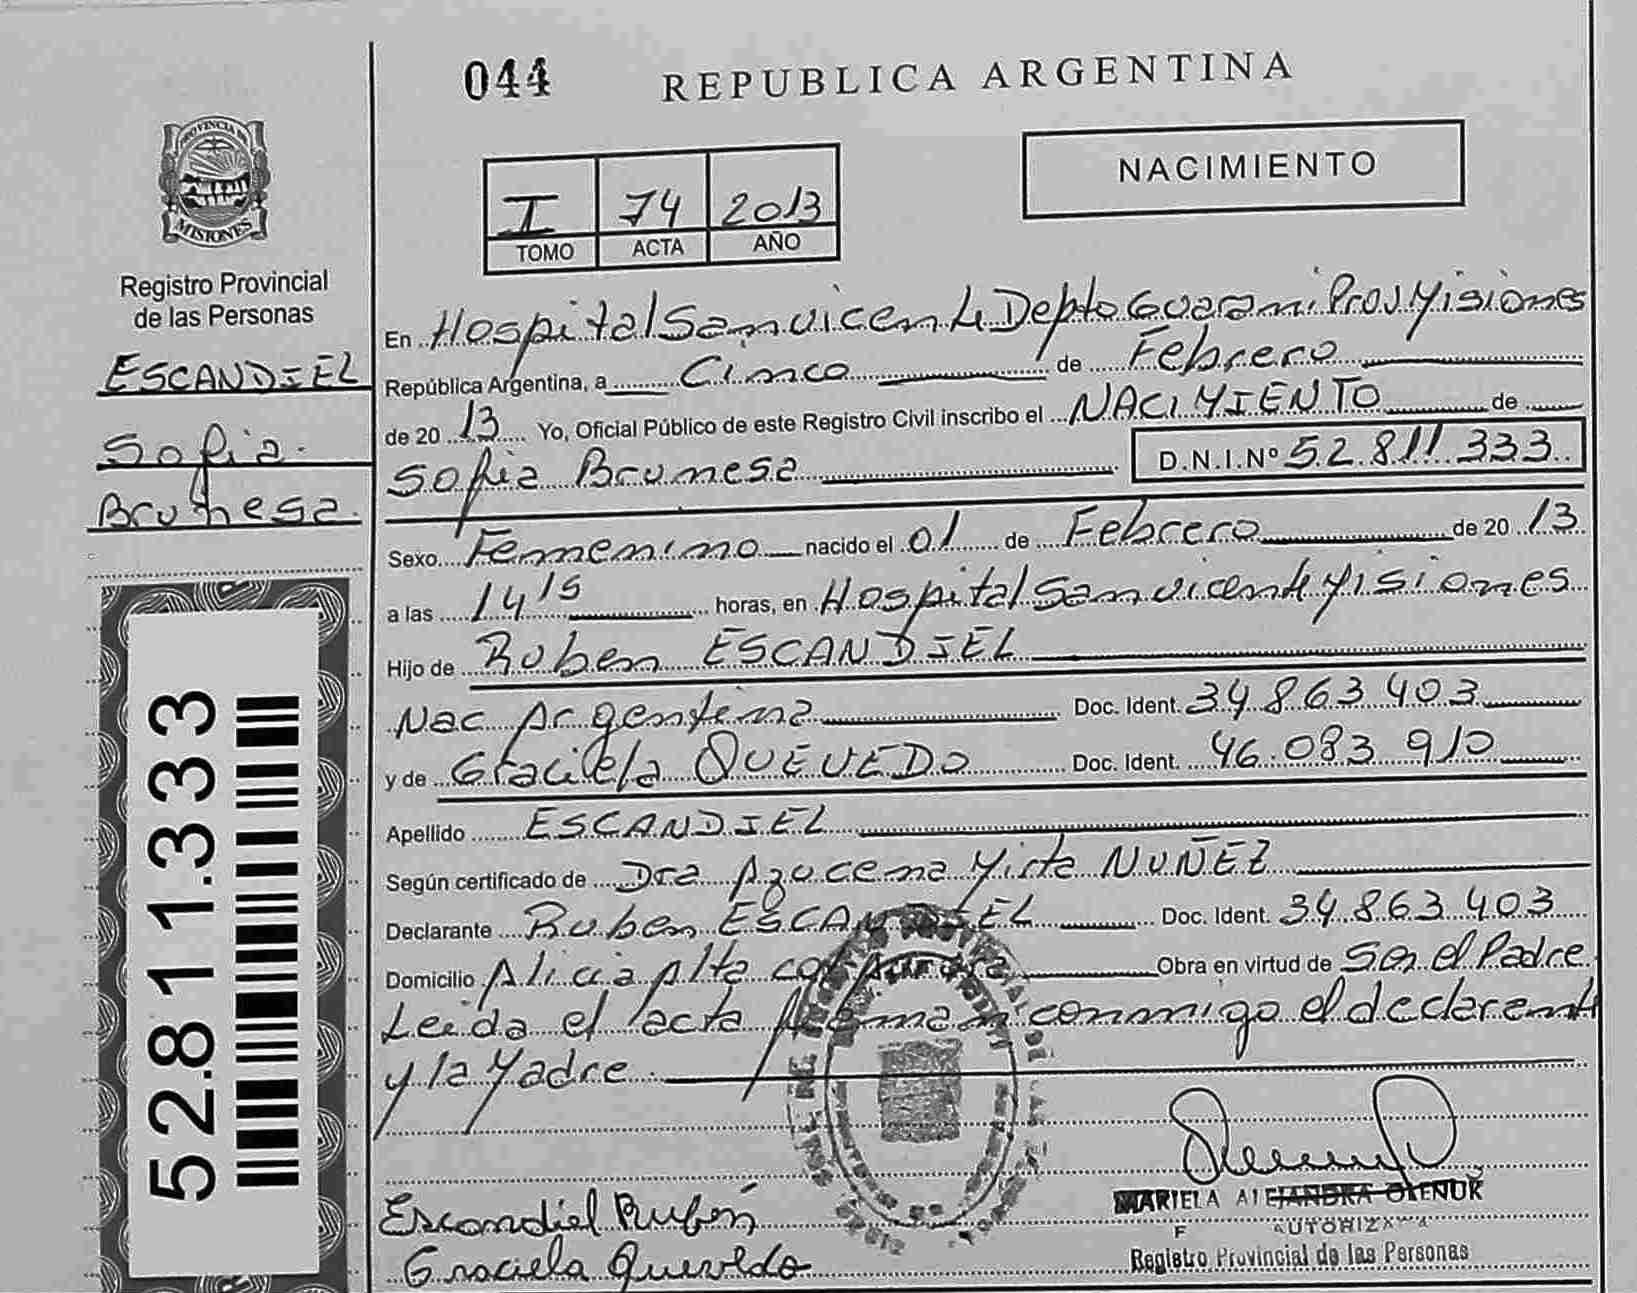 044
REPUBLICA ARGENTINA
NACIMIENTO
I 74 2013
TOMO ACTA AÑO
PROVINCIA DE
MISIONES
Registro Provincial
de las Personas
ESCANDIEL
Sofia
Brunesa
52.811.333
En Hospital San vicente Depto Guarani Prov Misiones
República Argentina, a Cinco de Febrero
de 20 13 Yo, Oficial Público de este Registro Civil inscribo el NACIMIENTO de
Sofia Brunesa D.N.I.Nº 52.811.333
Sexo Femenino nacido el 01 de Febrero de 20 13
a las 14 15 horas, en Hospital San vicente Misiones
Hijo de Ruben ESCANDIEL
Nac Argentina Doc. Ident. 34.863.403
y de Graciela QUEVEDO Doc. Ident. 46.083.910
Apellido ESCANDIEL
Según certificado de Dra Azucena Mirta NUÑEZ
Declarante Ruben ESCANDIEL Doc. Ident. 34.863.403
Domicilio Alicia Alta Obra en virtud de Ser el Padre
Leida el acta firman conmigo el declarante
y la Madre
Escandiel Rubén
Graciela Quevedo
MARIELA ALEJANDRA OLENUK
AUTORIZADA
Registro Provincial de las Personas